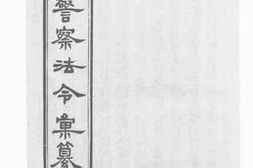 警察法令彙纂